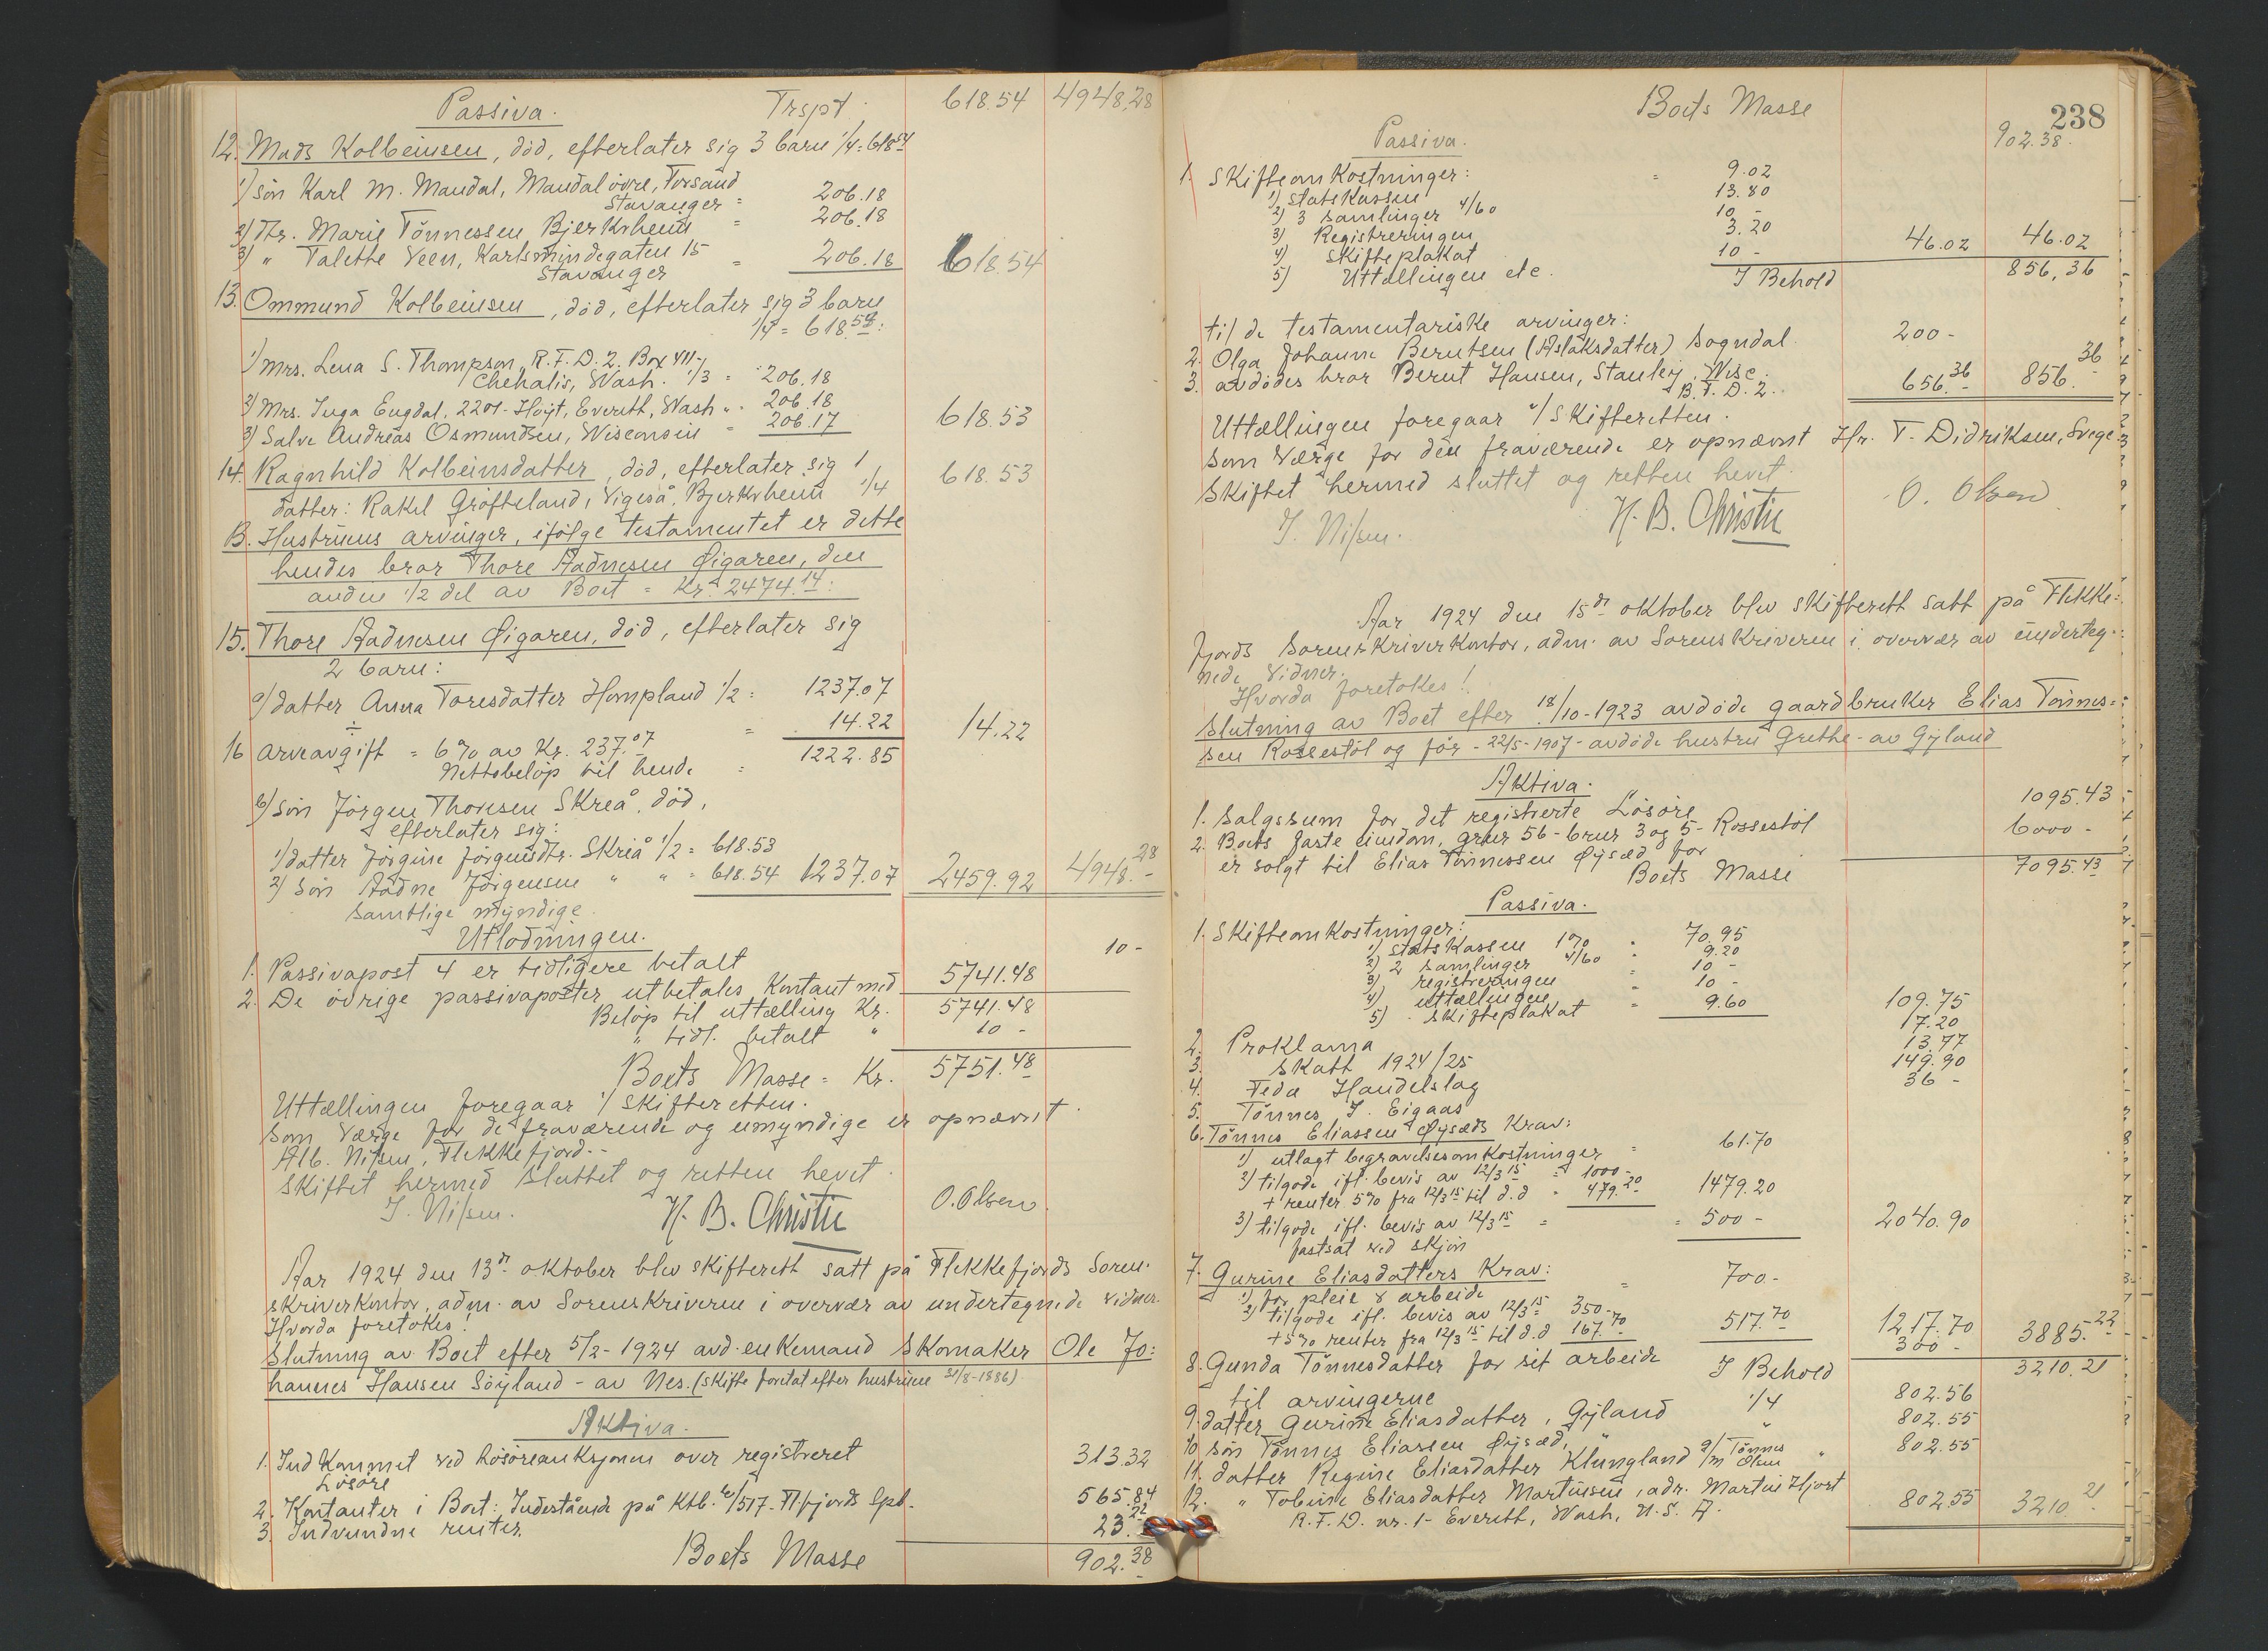 Passiva. Trspt. 618.54 4948,28
12. Mads Kolbeinsen, död, efterlater sig 3 barn 1/4 = 618.54
1) sön Karl M. Maudal, Maudal övre, Forsand
Stavanger = 206.18
2) Dtr. Marie Tönnessen Bjerkrheim = 206.18
3) " Talette Veen, Karlsmindegaten 15
Stavanger = 206.18 618.54
13. Ommund Kolbeinsen, död, efterlater sig 3 barn
1/4 = 618.54:
1) Mrs. Lena S. Thompson, R.F.D. 2. Box 411-
Chehalis, Wash. 1/3 = 206.18
2) Mrs. Inga Engdal, 2201- Höyt, Everett, Wash " = 206.18
3) Salve Andreas Osmundsen, Wisconsin = 206.17 618.53
14. Ragnhild Kolbeinsdatter, död, efterlater sig 1
datter: Rakel Gröfteland, Vigeså, Bjerkrheim 1/4 618.53
B. Hustruens arvinger, ifölge testamentet er dette
hendes bror Thore Aadnesen Øigaren, den
anden 1/2 del av Boet = Kr. 2474.14:
15. Thore Aadnesen Øigaren, död, efterlater sig
2 barn:
a) datter Anna Toresdatter Hompland 1/2 = 1237.07
÷
16 arveavgift = 6% av Kr. 237.07 = 14.22 14.22
Nettobelöp til hende = 1222.85
b) sön Jörgen Thorsen Skreå, död,
efterlater sig:
1) datter Jörgine Jörgensdtr. Skreå 1/2 = 618.53
2) sön Aadne Jörgensen " " = 618.54 1237.07 2459.92 4948.28
samtlige myndige.
Utlodningen.
1. Passivapost 4 er tidligere betalt 10 -
2. De övrige passivaposter utbetales kontant med 5741.48
Belöp til uttælling Kr. 5741.48
" tidl. betalt " 10 -
Boets Masse = Kr. 5751.48
Uttællingen foregaar i skifteretten.
Som Værge for de fraværende og umyndige er opnævnt
Alb. Nilsen, Flekkefjord. -
Skiftet hermed sluttet og retten hevet.
J. Nilsen. H. B. Christie O. Olsen.
Aar 1924 den 13de oktober blev skifterett satt på Flekkefjords Soren-
skriverkontor, adm. av Sorenskriveren i overvær av undertegnede vidner.
Hvorda foretokes!
Slutning av Boet efter 5/2-1924 avd. enkemand Skomaker Ole Jo:
hannes Hansen Söyland - av Nes. (skifte foretat efter hustruen 31/8-1886)
Aktiva.
1. Indkommet ved Lösöreauksjonen over registreret
Lösöre 313.32
2. Kontanter i Boet: Indestående på Ktb. /517 - Flfjords Spb - 565.84
3. Indvundne renter 23.22
Boets Masse 902.38
Boets Masse 238
Passiva. 902.38.
1. Skifteomkostninger:
1) statskassen = 9.02
2) 3 samlinger 4/60 13.80
3) Registreringen 10 -
4) Skifteplakat 3.20
5) Uttællingen etc. 10 - 46.02 46.02
I Behold 856,36
til de testamentariske arvinger:
2. Olga Johanne Berntsen (Aslaksdatter) Sogndal. 200 -
3. avdödes bror Bernt Hansen, Stanley, Wisc.
R.F.D. 2. 656.36 856.36
Uttællingen foregaar i skifteretten.
Som Værge for den fraværende er opnævnt Hr. T. Didriksen, Svege
Skiftet hermed sluttet og retten hevet.
J. Nilsen. H. B. Christie O. Olsen
Aar 1924 den 15de oktober blev skifterett satt på Flekke:
fjords Sorenskriverkontor, adm. av Sorenskriveren i overvær av underteg-
nede vidner.
Hvorda foretokes!
Slutning av Boet efter 18/10-1923 avdöde gaardbruker Elias Tönnes=
sen Rossestöl og för - 22/5-1907 - avdöde hustru Grethe - av Gyland
Aktiva.
1. Salgssum for det registrerte Lösöre 1095.43
2. Boets faste eiendom, gnr 56 - brnr 3 og 5 - Rossestöl
er solgt til Elias Tönnessen Öysæd for 6000 -
Boets Masse 7095.43
Passiva.
1. Skifteomkostninger:
1) statskassen 1% = 70.95
2) 2 samlinger 4/60 9.20
3) registreringen = 10 -
4) uttællingen = 10 -
5) skifteplakat = 9.60 109.75
2. Proklama 17.20
3. Skatt 1924/25 13.77
4. Feda Handelslag 149.90
5. Tönnes J. Eigaas 36 -
6. Tönnes Eliassen Öysæds Krav:
1) utlagt begravelsesomkostninger = 61.70
2) tilgode ifl. bevis av 12/3 15 = 1000 -
+ renter 5% fra 12/3 15 til d.d = 479.20 1479.20
3) tilgode ifl. bevis av 12/3 15 =
fastsat ved skjön = 500 - 2040.90
7. Gurine Eliasdatters Krav:
1) for pleie & arbeide = 700 -
2) tilgode ifl. bevis av 12/3 15 = 350 -
+ 5% renter fra 12/3 15 til d.d 167.70 517.70 1217.70
8. Gunda Tönnesdatter for sit arbeide 300 - 3885.22
I Behold 3210.21
til arvingerne
9. datter Gurine Eliasdatter, Gyland 1/4 802.56
10 sön Tönnes Eliassen Öysæd, " " 802.55
11. datter Regine Eliasdatter Klungland g/m Tönnes Olsen " 802.55
12. " Tobine Eliasdatter Martinsen, adr. Martin Hjort
R.F.D. nr. 1 - Everett, Wash, U.S.A. 802.55 3210.21